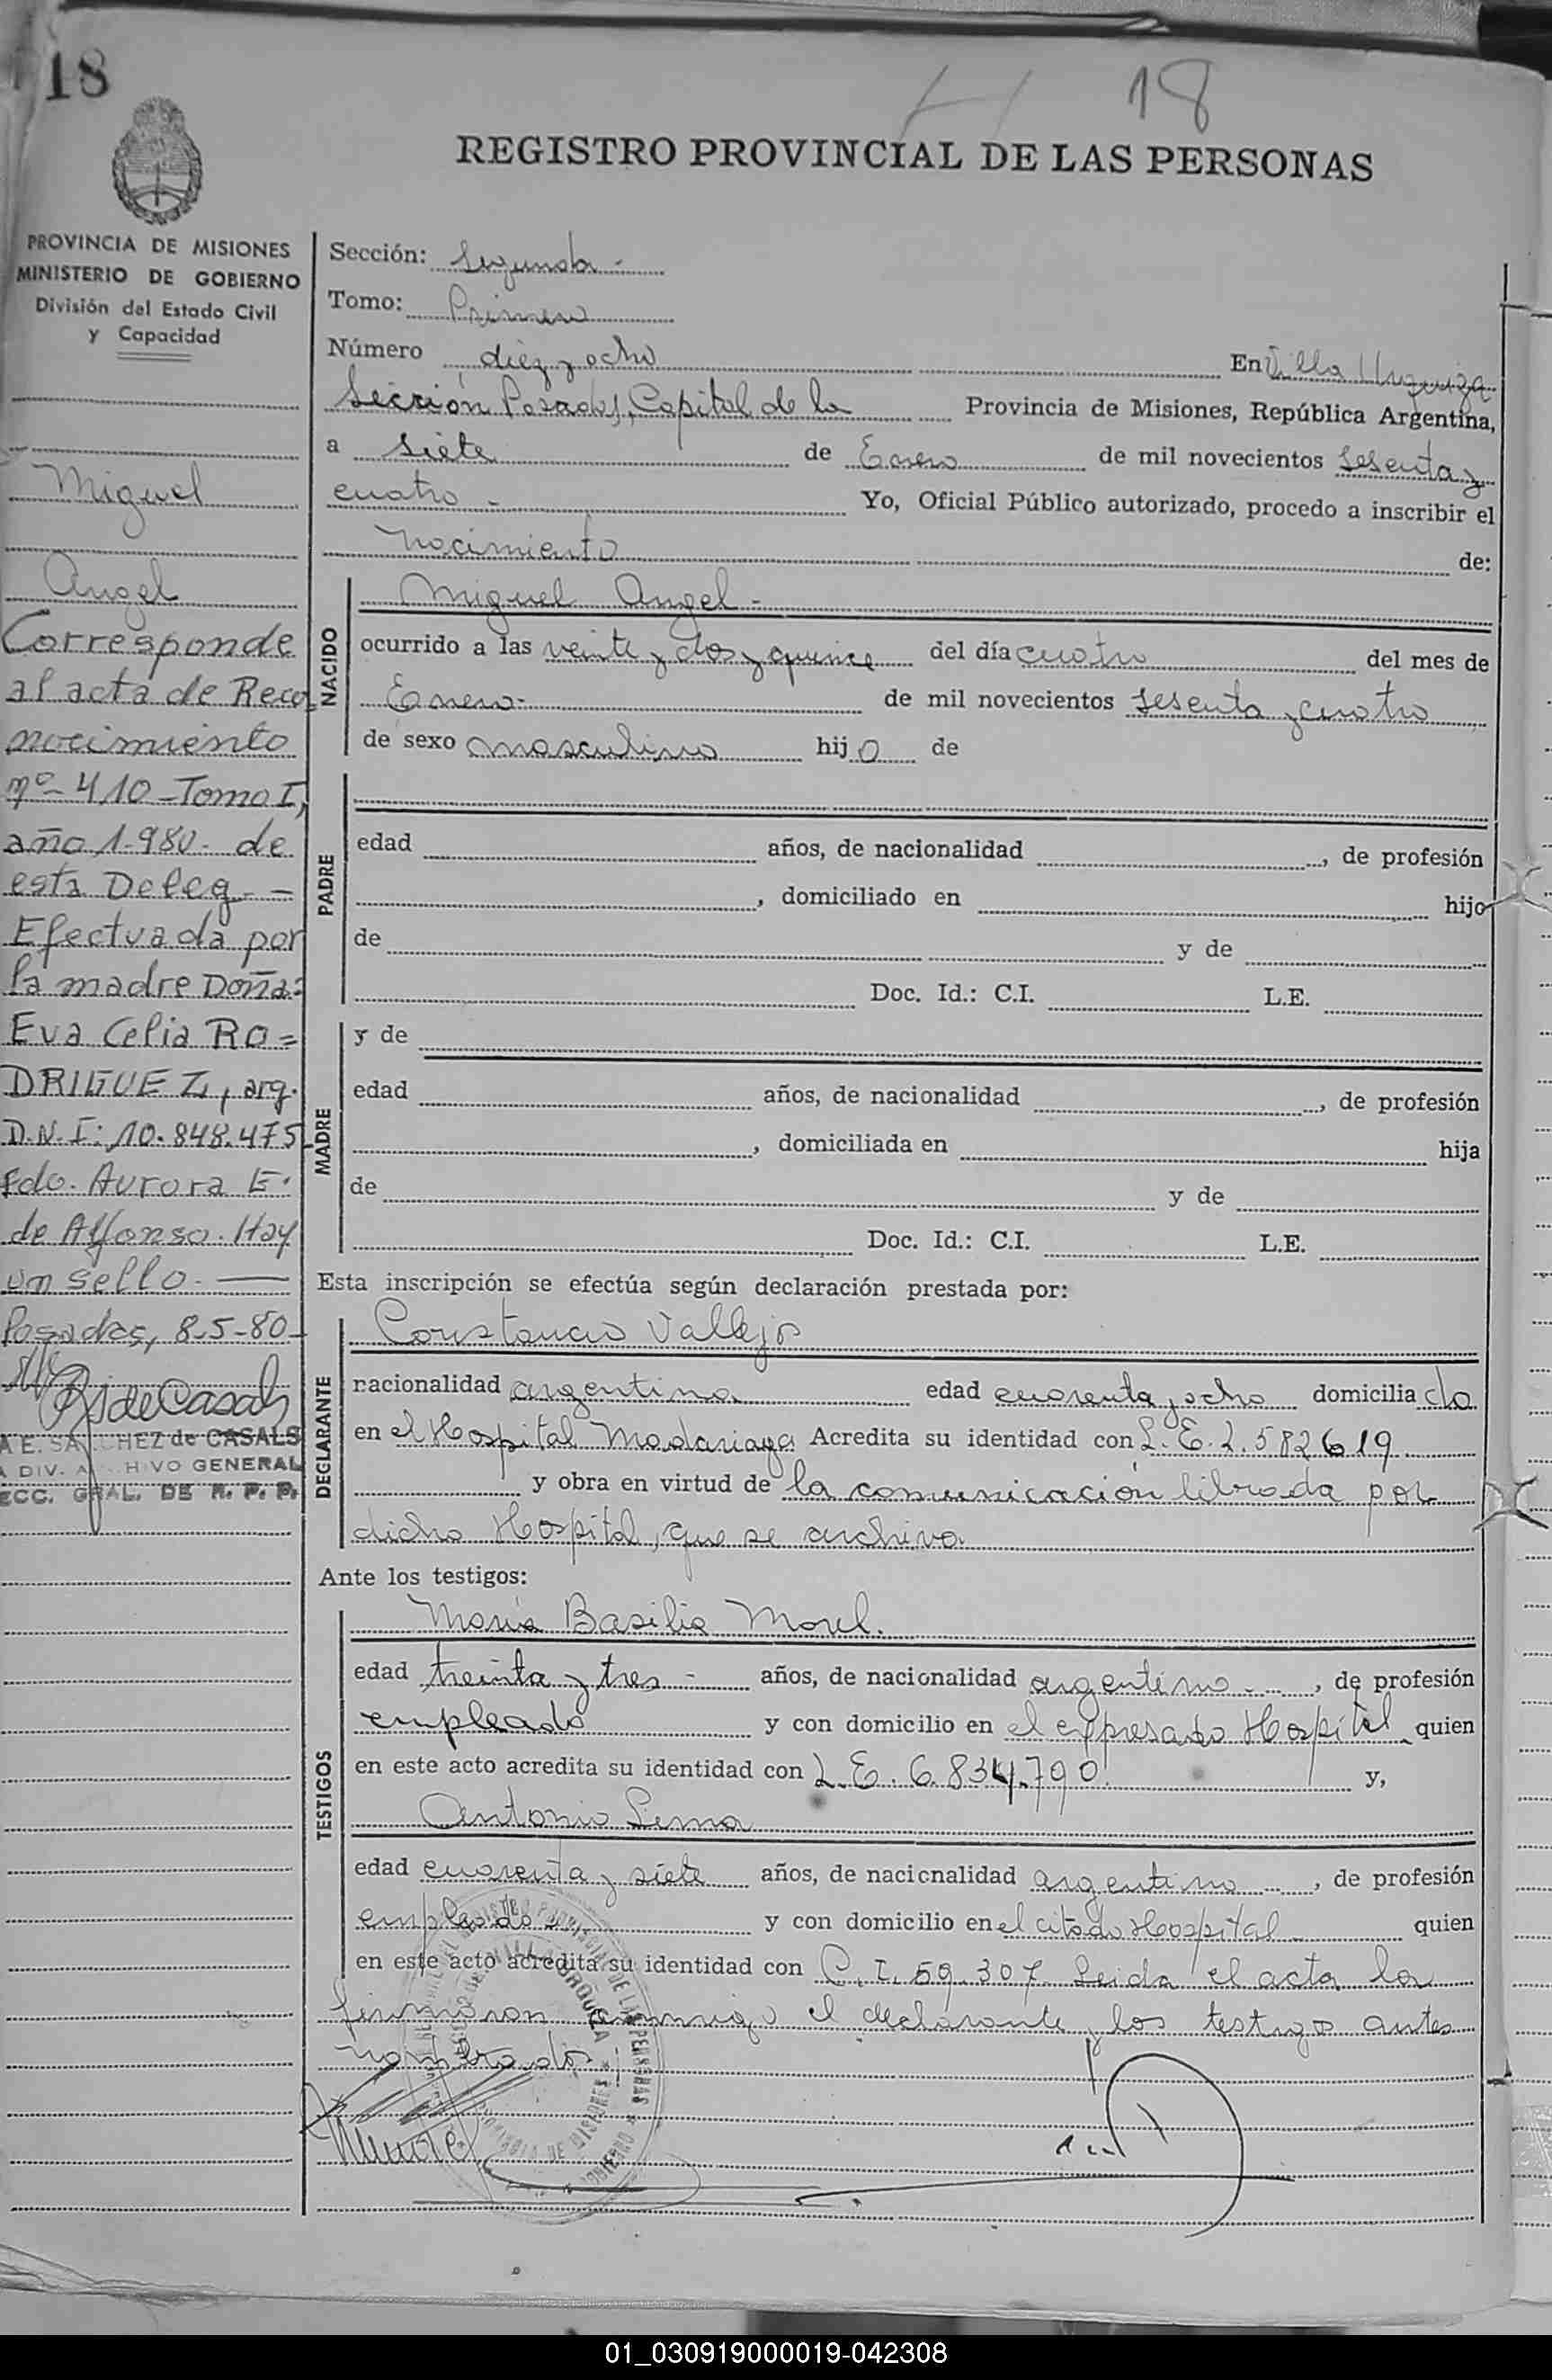 18
18
REGISTRO PROVINCIAL DE LAS PERSONAS
PROVINCIA DE MISIONES
MINISTERIO DE GOBIERNO
División del Estado Civil
y Capacidad
Miguel
Angel
Corresponde
al acta de Reco
nocimiento
nº 410 - Tomo I,
año 1.980 - de
esta Deleg. =
Efectuada por
la madre Doña:
Eva Celia RO=
DRIGUEZ, arg.
D.N.I: 10.848.475
Fdo. Aurora E.
de Alfonso. Hay
un sello. —
Posadas, 8-5-80-
de Casals
de CASALS
DIV. HIVO GENERAL
GRAL. DE R. P. P.
Sección: Segunda -
Tomo: Primero
Número diez y ocho En Villa Urquiza
Sección Posadas, Capital de la Provincia de Misiones, República Argentina,
a siete de Enero de mil novecientos sesenta y
cuatro - Yo, Oficial Público autorizado, procedo a inscribir el
nacimiento de:
NACIDO
Miguel Angel -
ocurrido a las veinte y dos y quince del día cuatro del mes de
Enero - de mil novecientos sesenta y cuatro
de sexo masculino hijo de
PADRE
edad años, de nacionalidad , de profesión
, domiciliado en hijo
de y de
Doc. Id.: C.I. L.E.
MADRE
y de
edad años, de nacionalidad , de profesión
, domiciliada en hija
de y de
Doc. Id.: C.I. L.E.
Esta inscripción se efectúa según declaración prestada por:
DECLARANTE
Constancio Vallejo
nacionalidad argentina edad cuarenta y ocho domiciliado
en el Hospital Madariaga Acredita su identidad con L.E. 2.582619
y obra en virtud de la comunicación librada por
dicho Hospital, que se archiva
Ante los testigos:
TESTIGOS
María Basilia Morel.
edad treinta y tres - años, de nacionalidad argentino - , de profesión
empleado y con domicilio en el expresado Hospital quien
en este acto acredita su identidad con L.E. 6.834.790 y,
Antonio Lima
edad cuarenta y siete años, de nacionalidad argentino , de profesión
empleado y con domicilio en el citado Hospital quien
en este acto acredita su identidad con C.I. 59.307 Leida el acta la
firmaron conmigo el declarante y los testigos antes
nombrados
01_030919000019-042308